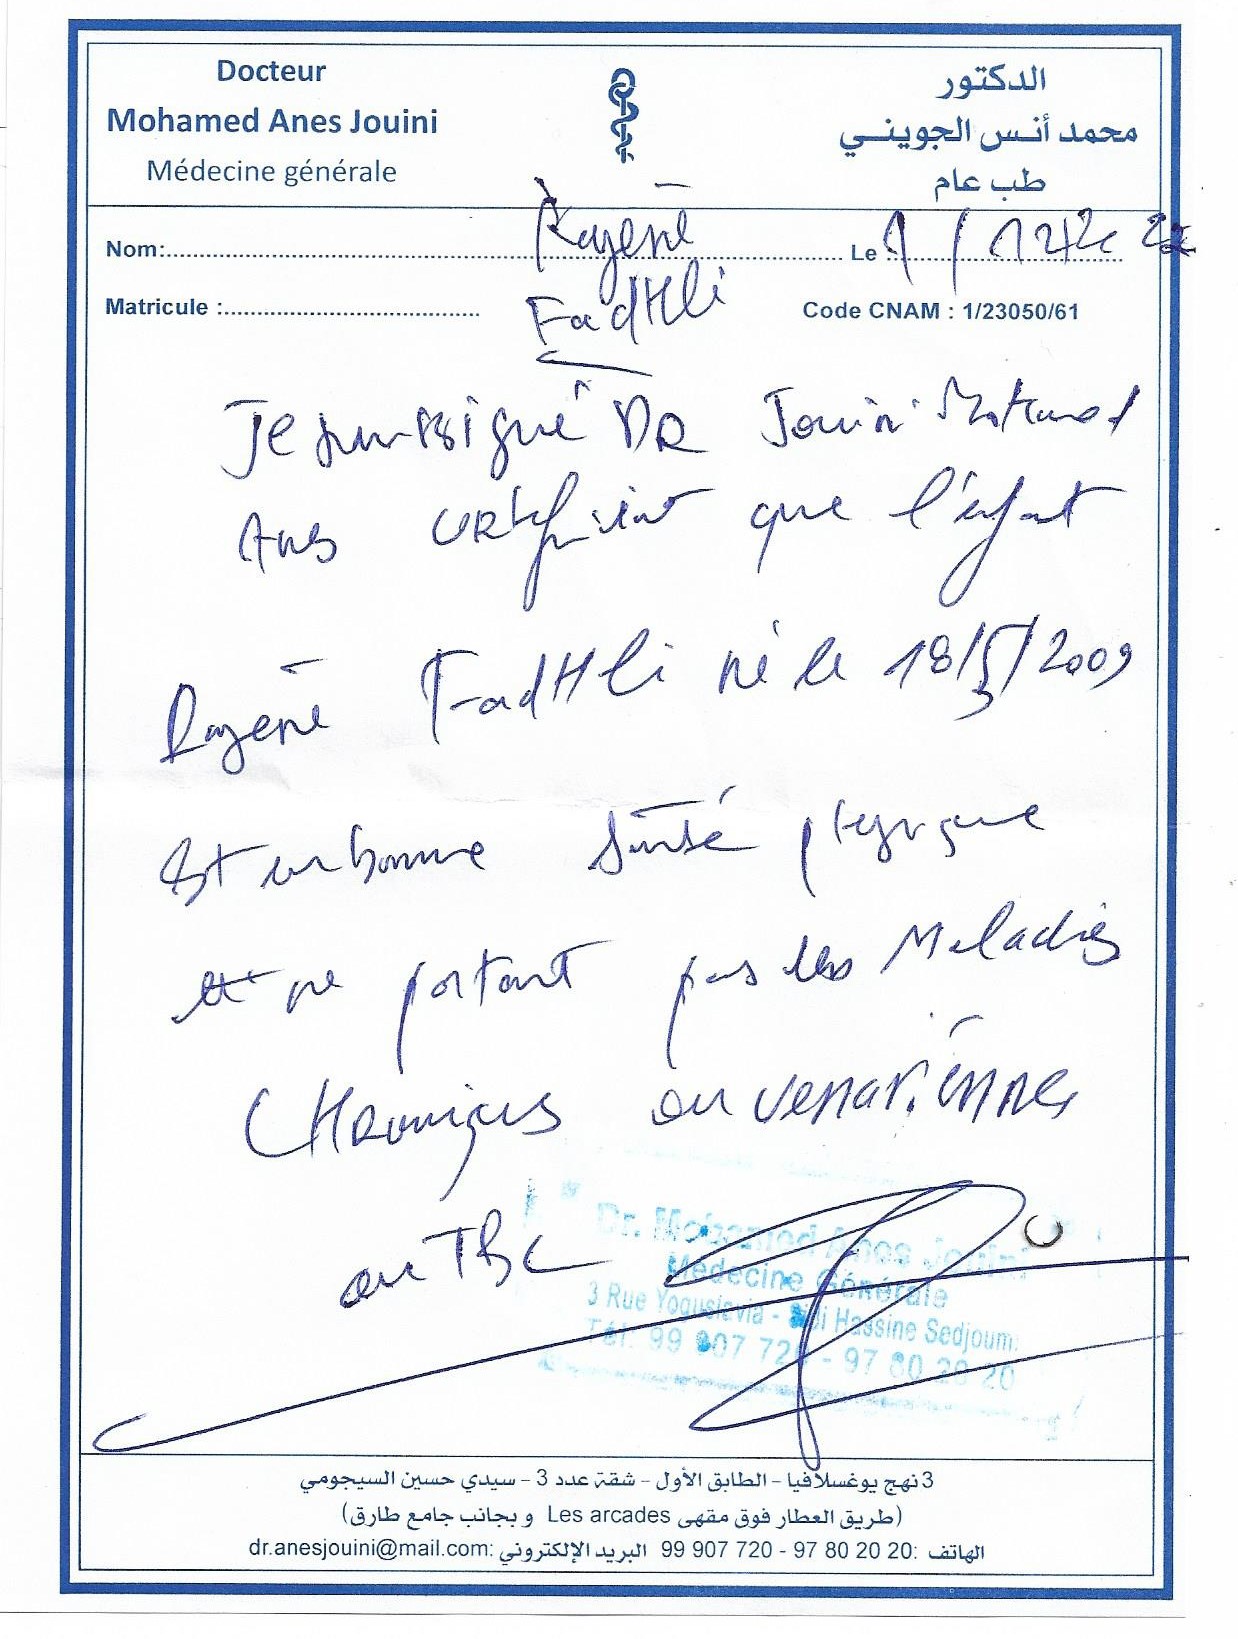 Docteur
Mohamed Anes Jouini
Médecine générale
الدكتور
محمد أنس الجويني
طب عام
Nom: Rayene
Le 1/12/2022
FadHli
Matricule :
Code CNAM : 1/23050/61
Je soussigné DR Jouini Mohamed
Anes certifiant que l'enfant
Rayene FadHli né le 18/5/2009
Est en bonne Santé physique
et ne portant pas des Maladies
CHroniques ou venariennes
ou TBC
Dr. Mohamed Anes Jouini
Médecine Générale
3 Rue Yoguslavia - Sidi Hassine Sedjoumi
Tél: 99 907 720 - 97 80 20 20
3 نهج يوغسلافيا - الطابق الأول - شقة عدد 3 - سيدي حسين السيجومي
(طريق العطار فوق مقهى Les arcades و بجانب جامع طارق)
الهاتف: 99 907 720 - 97 80 20 20 البريد الإلكتروني: dr.anesjouini@mail.com